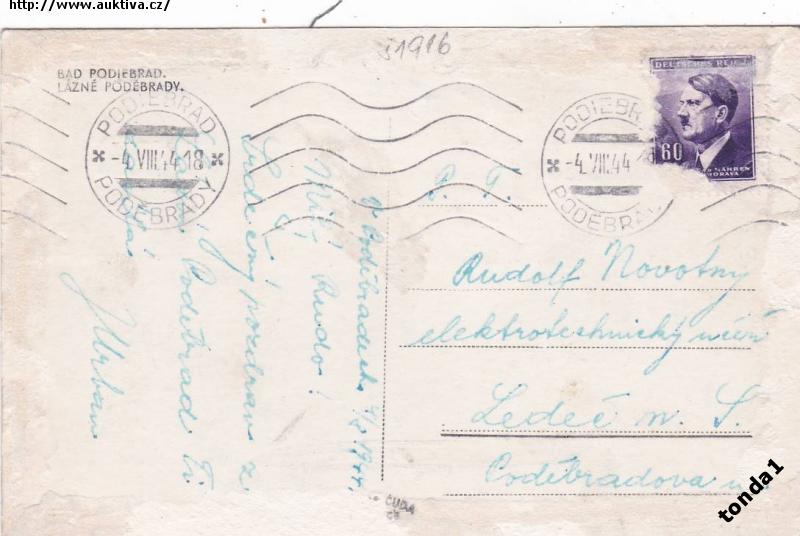 http://www.auktiva.cz/
J1916
BAD PODIEBRAD.
LÁZNĚ PODĚBRADY.
PODIEBRAD
-4.VIII.44.18
PODĚBRADY
PODIEBRAD
-4.VIII.44
PODĚBRADY
DEUTSCHES REICH
60
MÄHREN
MORAVA
V Poděbradech 4/8 1944.
Milý Rudo!
Srdečný pozdrav z
Poděbrad Ti
JUrban
P. T.
Rudolf Novotný
elektrotechnický učeň
Ledeč n. S.
Poděbradova
tonda1